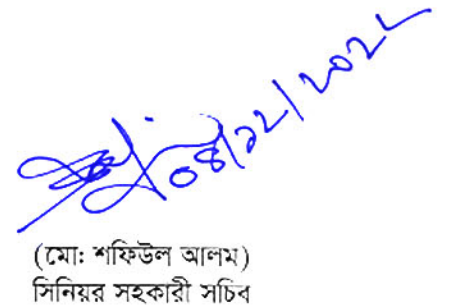 ০৪/১২/২০২২
(মো: শফিউল আলম)
সিনিয়র সহকারী সচিব